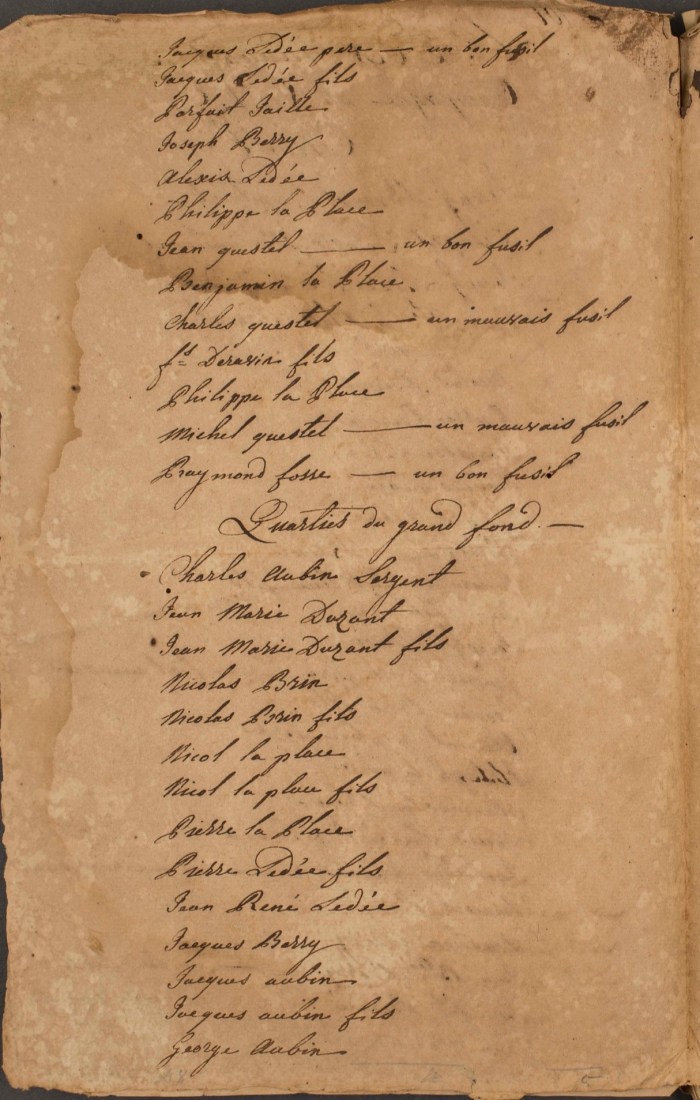 Jacques Ledée pere — un bon fusil
Jacques Ledée fils
Parfait Taille
Joseph Berry
Alexis Ledée
Philippe la Place
Jean questel — un bon fusil
Benjamin la Place
Charles questel — un mauvais fusil
fs Deravin fils
Philippe la Place
Michel questel — un mauvais fusil
Raymond fosse — un bon fusil
Quartier du grand fond —
Charles Aubin Sergent
Jean Marie Duzant
Jean Marie Duzant fils
Nicolas Brin
Nicolas Brin fils
Nicol la place
Nicol la place fils
Pierre la Place
Pierre Ledée fils
Jean René Ledée
Jacques Berry
Jacques aubin
Jacques aubin fils
George Aubin